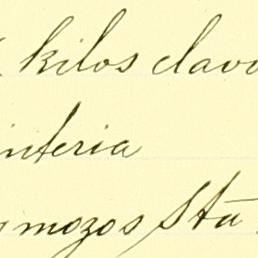 kilos clavo
interia
mozos Sta